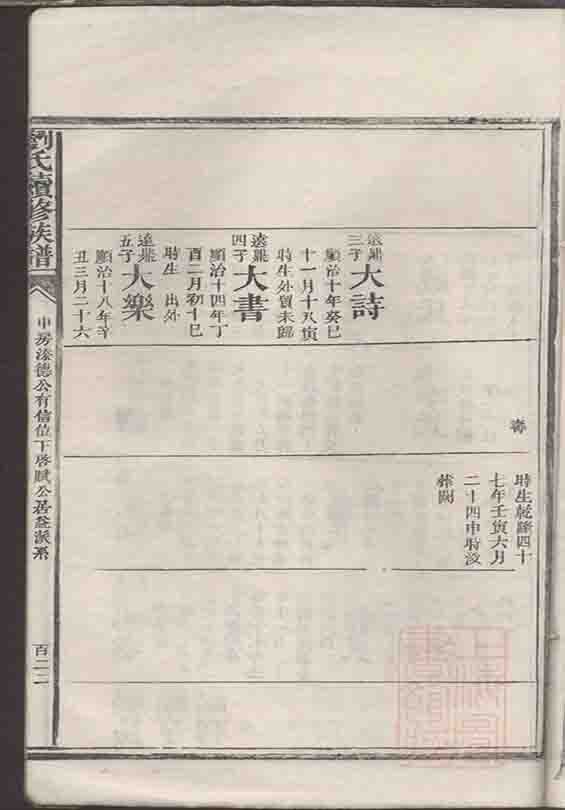 時生乾隆四十
七年壬寅六月
二十四申時沒
葬闕
遠鼎
三子
大詩
順治十年癸巳
十一月十八寅
時生外貿未歸
遠鼎
四子
大書
順治十四年丁
酉二月初十巳
時生 出外
遠鼎
五子
大樂
順治十八年辛
丑三月二十六
劉氏續修族譜
申房溱德公有信位下啓賦公居益派系
百二二